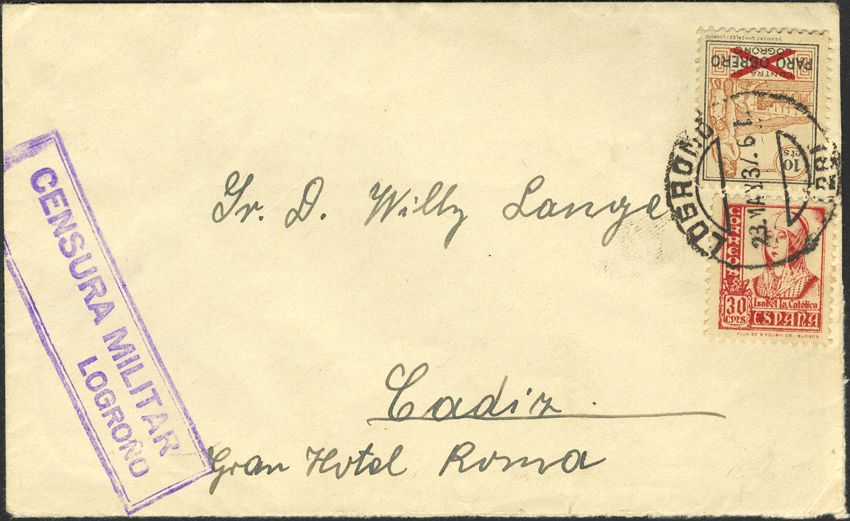 CONTRA
PARO OBRERO
LOGROÑO
10
cts
LOGROÑO
23.MAY37.6T
CORREOS
30
CTS
Isabel la Católica
ESPAÑA
Sr. D. Willy Lange
CENSURA MILITAR
LOGROÑO
Cadiz.
Gran Hotel Roma